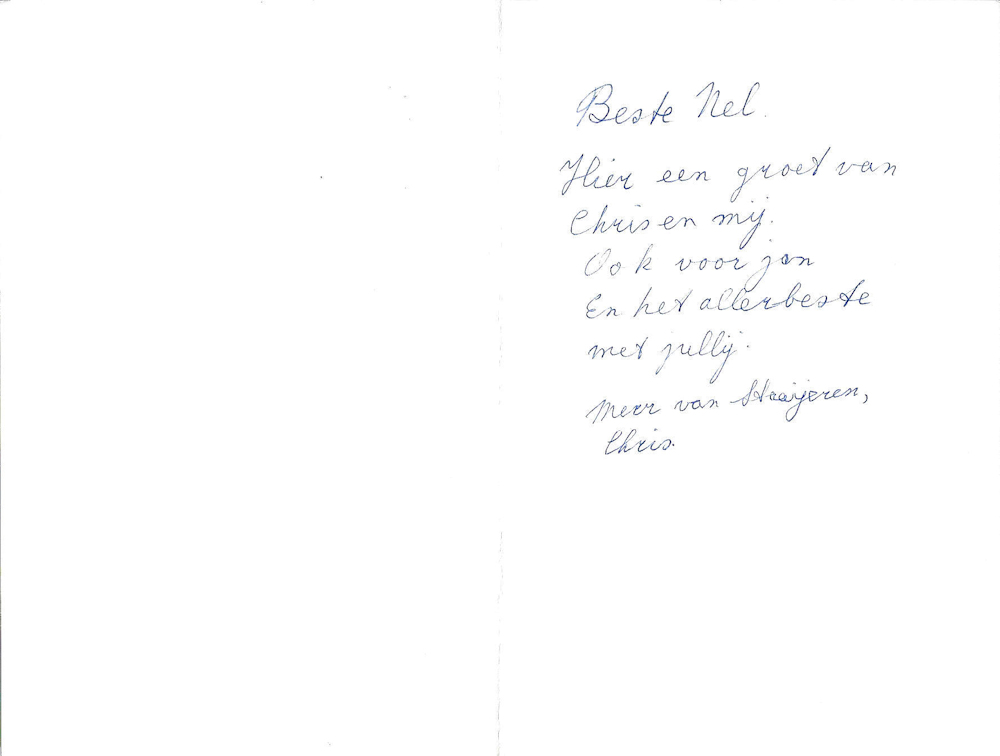 Beste Nel.
Hier een groet van
Chris en mij.
Ook voor jan
En het allerbeste
met jullij.
van
Chris.